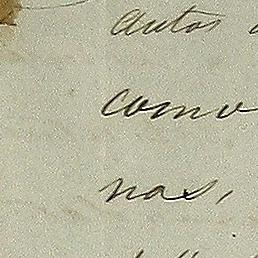 autos
como
nas,